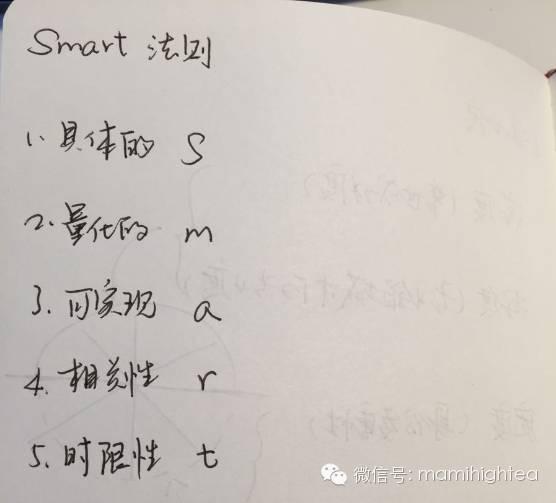 Smart 法则
1. 具体的 S
2. 量化的 m
3. 可实现 a
4. 相关性 r
5. 时限性 t
微信号: mamihightea